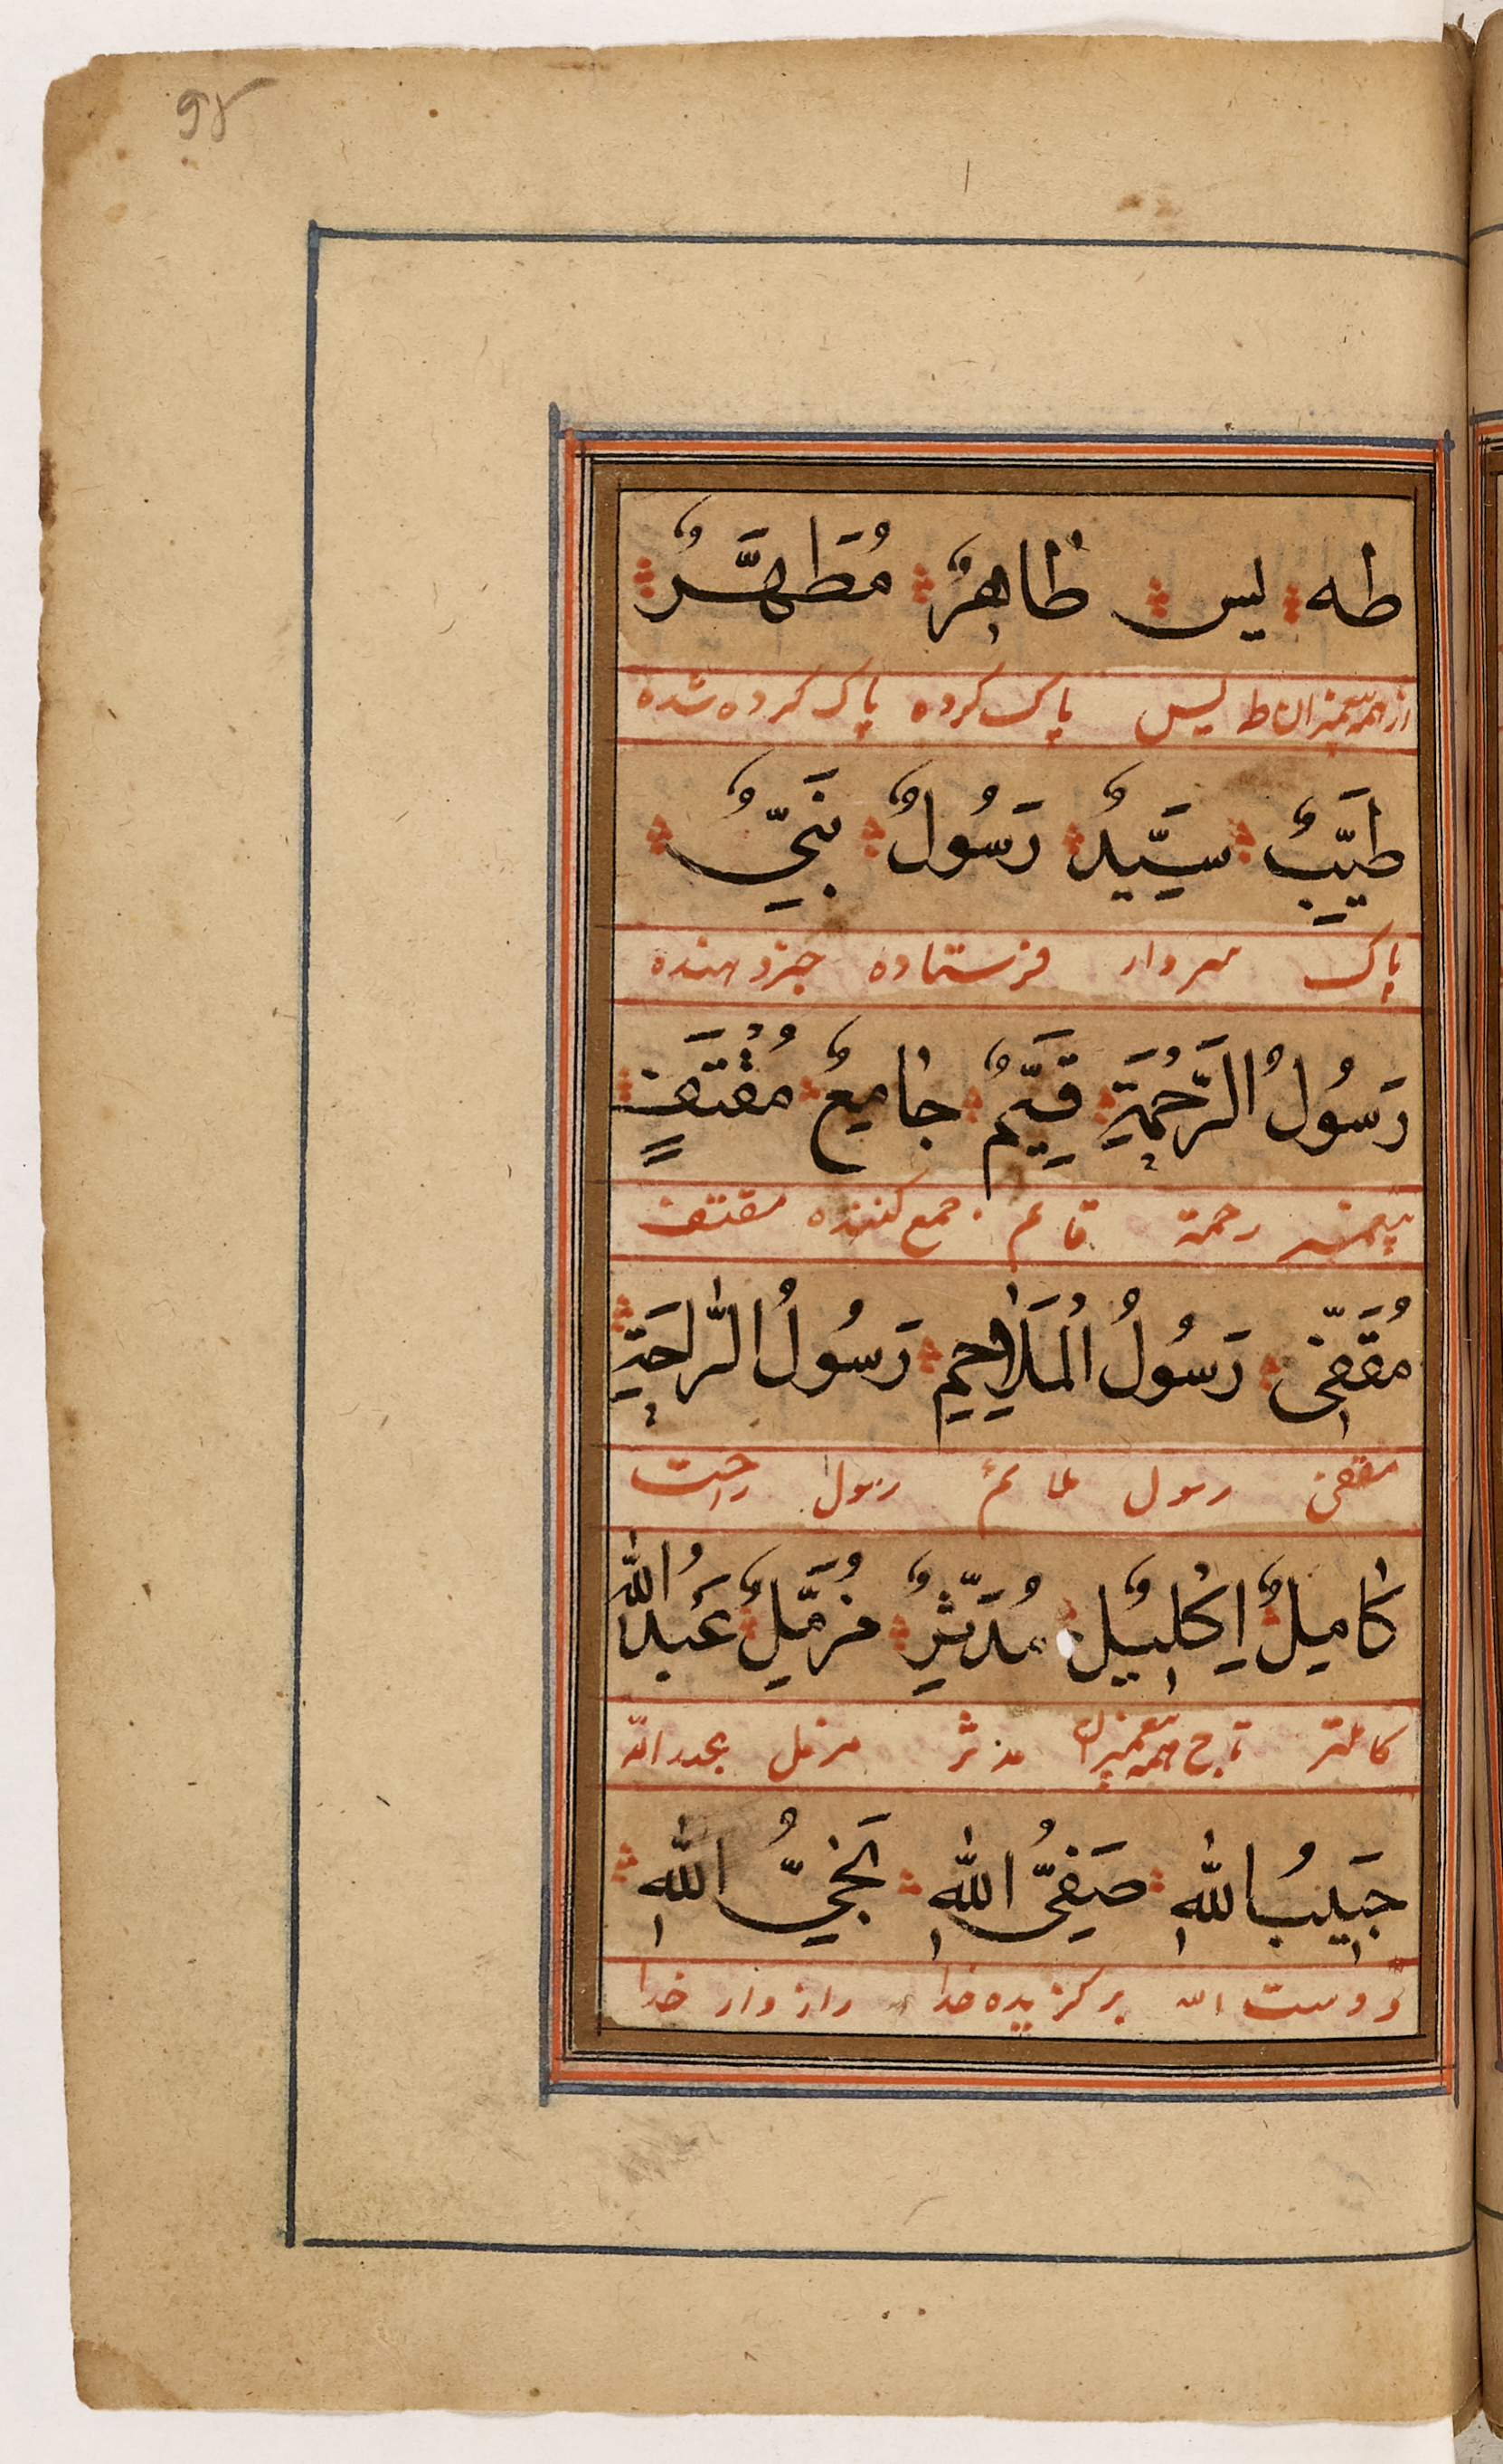 طه يس طَاهِرٌ مُطَهَّرٌ
از همه پیغمبران طه یس پاک کرده پاک کرده شده
طَيِّبٌ سَيِّدٌ رَسُولٌ نَبِيٌّ
پاک سردار فرستاده خبر دهنده
رَسُولُ الرَّحْمَةِ قَيِّمٌ جَامِعٌ مُقْتَفٍ
پیغمبر رحمة قایم جمع کننده مقتف
مُقَفّٰى رَسُولُ الْمَلَاحِمِ رَسُولُ الرَّاحَةِ
مقفی رسول رسول راحت
كَامِلٌ اِكْلِيْلٌ مُدَّثِّرٌ مُزَّمِّلٌ عَبْدُ اللهِ
کاملتر تاج همه پیغمبران مدثر مزمل عبد الله
حَبِيْبُ اللهِ صَفِيُّ اللهِ نَجِيُّ اللهِ
دوست الله برگزیده خدا راز دار خدا